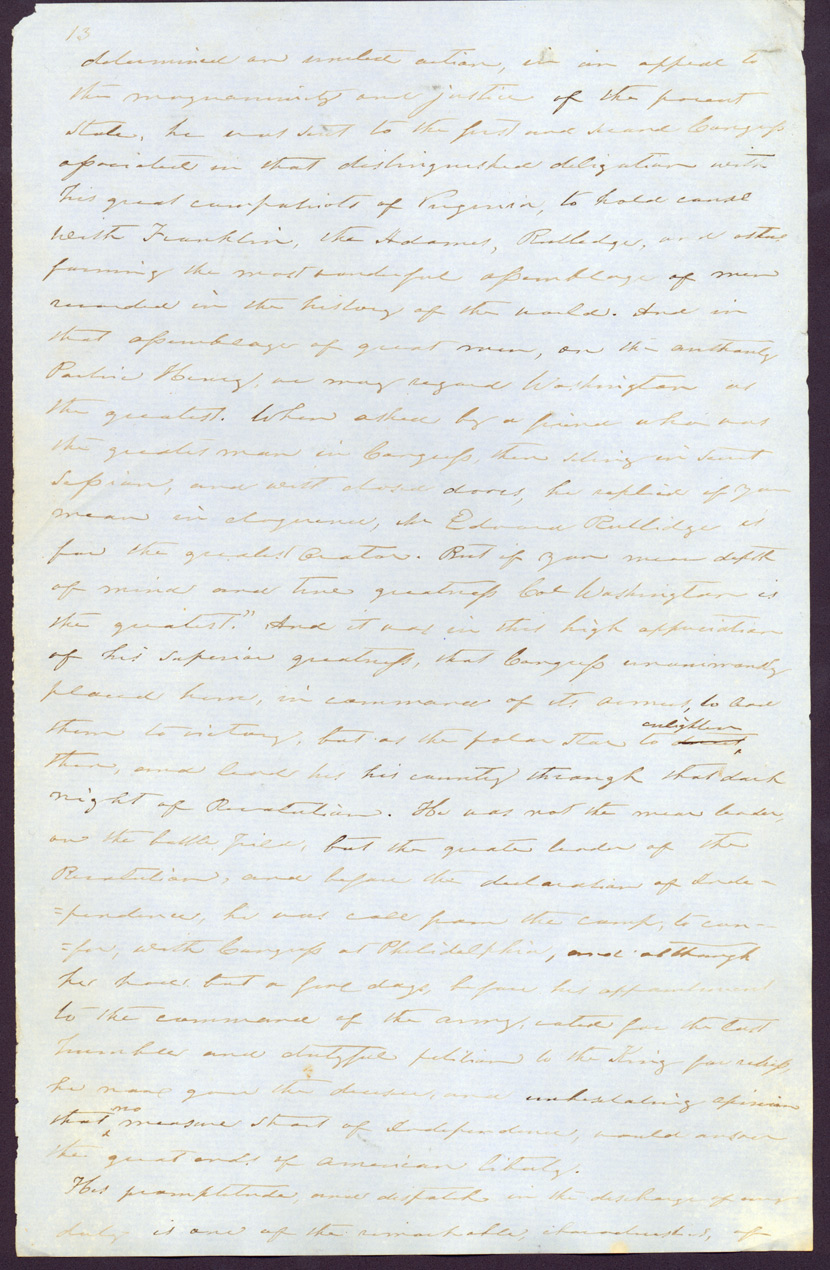 13
determined on united action, in an appeal to
the magnanimity and justice of the parent
State, he was sent to the first and second Congress
associated in that distinguished deligation with
his great compatriots of Virginia, to hold council
with Franklin, the Adames, Rutledge, and others
forming the most wonderful assemblage of men
recorded in the history of the world. And in
that assemblage of great men, on the authority
Patric Henry, we may regard Washington as
the greatest. When asked by a friend who was
the greatest man in Congress, then sitting in secret
Session, and with closed doors, he replied if you
mean in eloquence, Mr Edward Rutlidge is
far the greatest Orator. But if you mean depth
of mind and true greatness Col Washington is
the greatest." And it was in this high appreciation
of his superior greatness, that Congress unanimously
placed him, in command of its armies, to lead
them to victory, but as the polar star to
enlighten
them, and lead his his country through that dark
night of Revolution. He was not the mear leader,
on the battle field, but the greate leader of the
Revolution, and before the declaration of Inde-
=pendence, he was call from the camp, to con-
=fer, with Congress at Philidalphia, and although
he had but a few days, before his appointment
to the command of the army, voted for the last
humble and dutyful petition to the King for redress,
he now gave the decisive, and unhesitating opinion
that no measure short of Independence, would answer
the great ends of American liberty.
His promptitude, and dispatch in the discharge of any
duty is one of the remarkable, characteristics, of